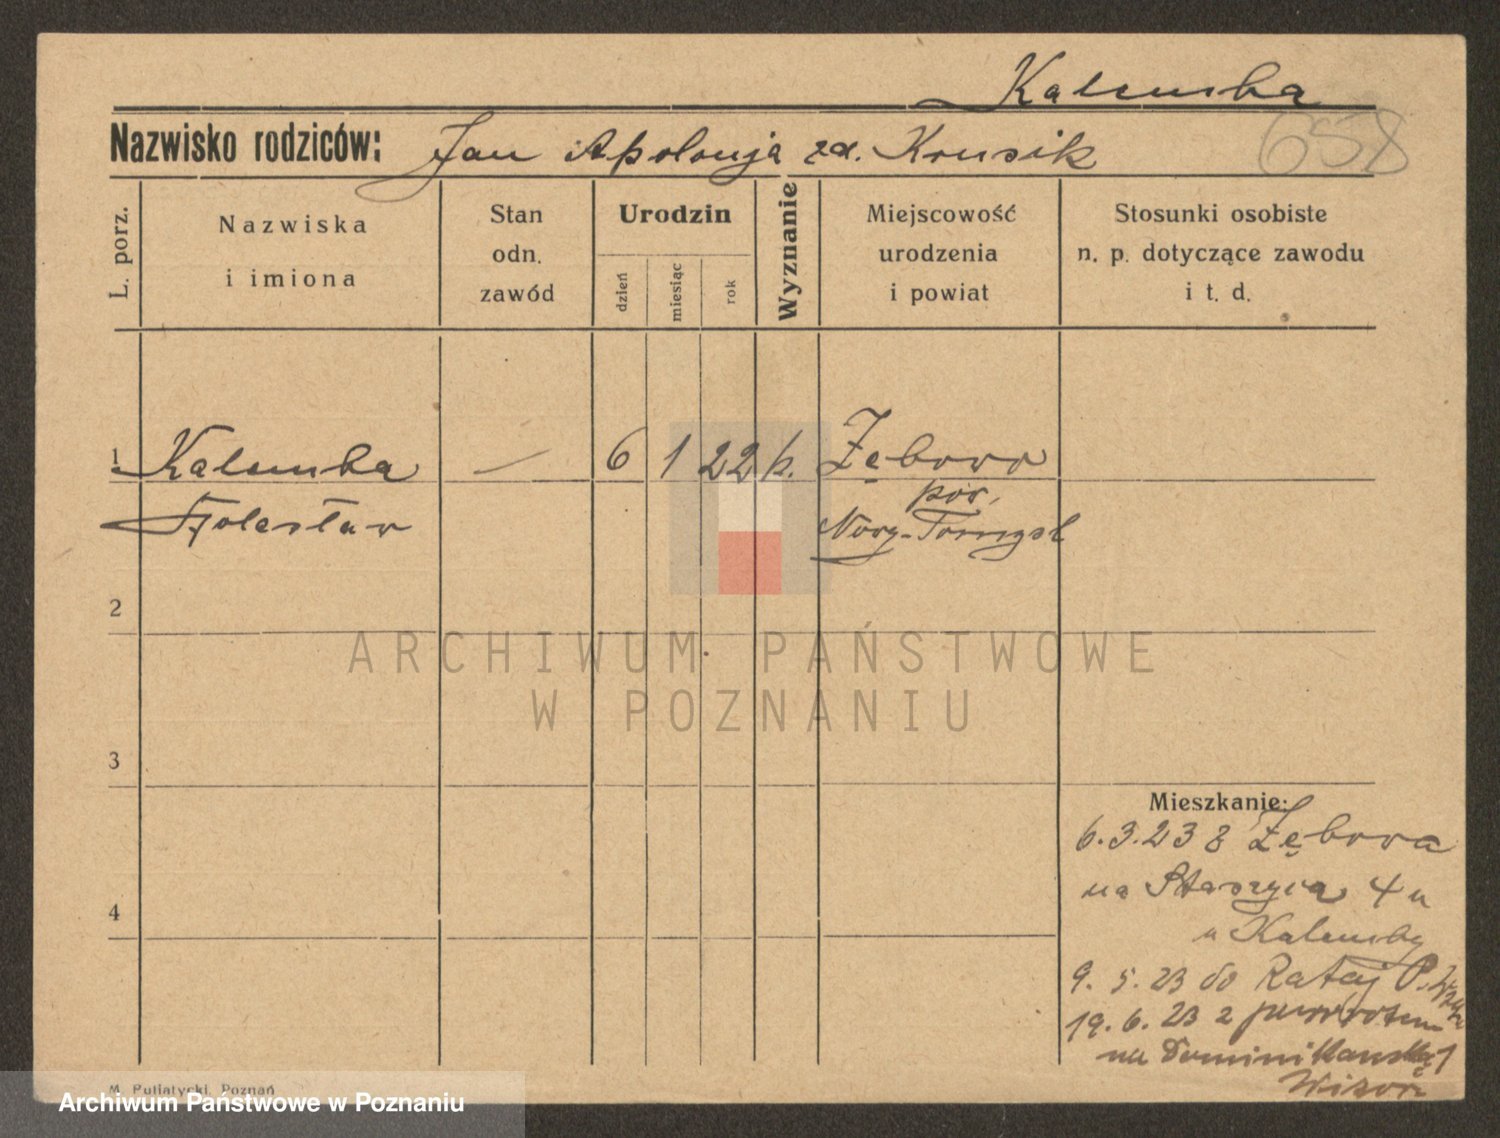 Kalemba
658
Nazwisko rodziców: Jan Apolonja zd. Krusik
L. porz.
Nazwiska
i imiona
Stan
odn.
zawód
Urodzin
dzień
miesiąc
rok
Wyznanie
Miejscowość
urodzenia
i powiat
Stosunki osobiste
n. p. dotyczące zawodu
i t. d.
1 Kalemba — 6 1 22 k. Zębowo
pow.
Nowy-Tomyśl
2
3
4
Mieszkanie:
6.3.23 z Zębowa
na Staszyca 4 u
u Kalemby
9. 5. 23 do Rataj P.
19. 6. 23 z powrotem
na Dominikańską 1
M. Putiatycki, Poznań
ARCHIWUM PAŃSTWOWE
W POZNANIU
Archiwum Państwowe w Poznaniu